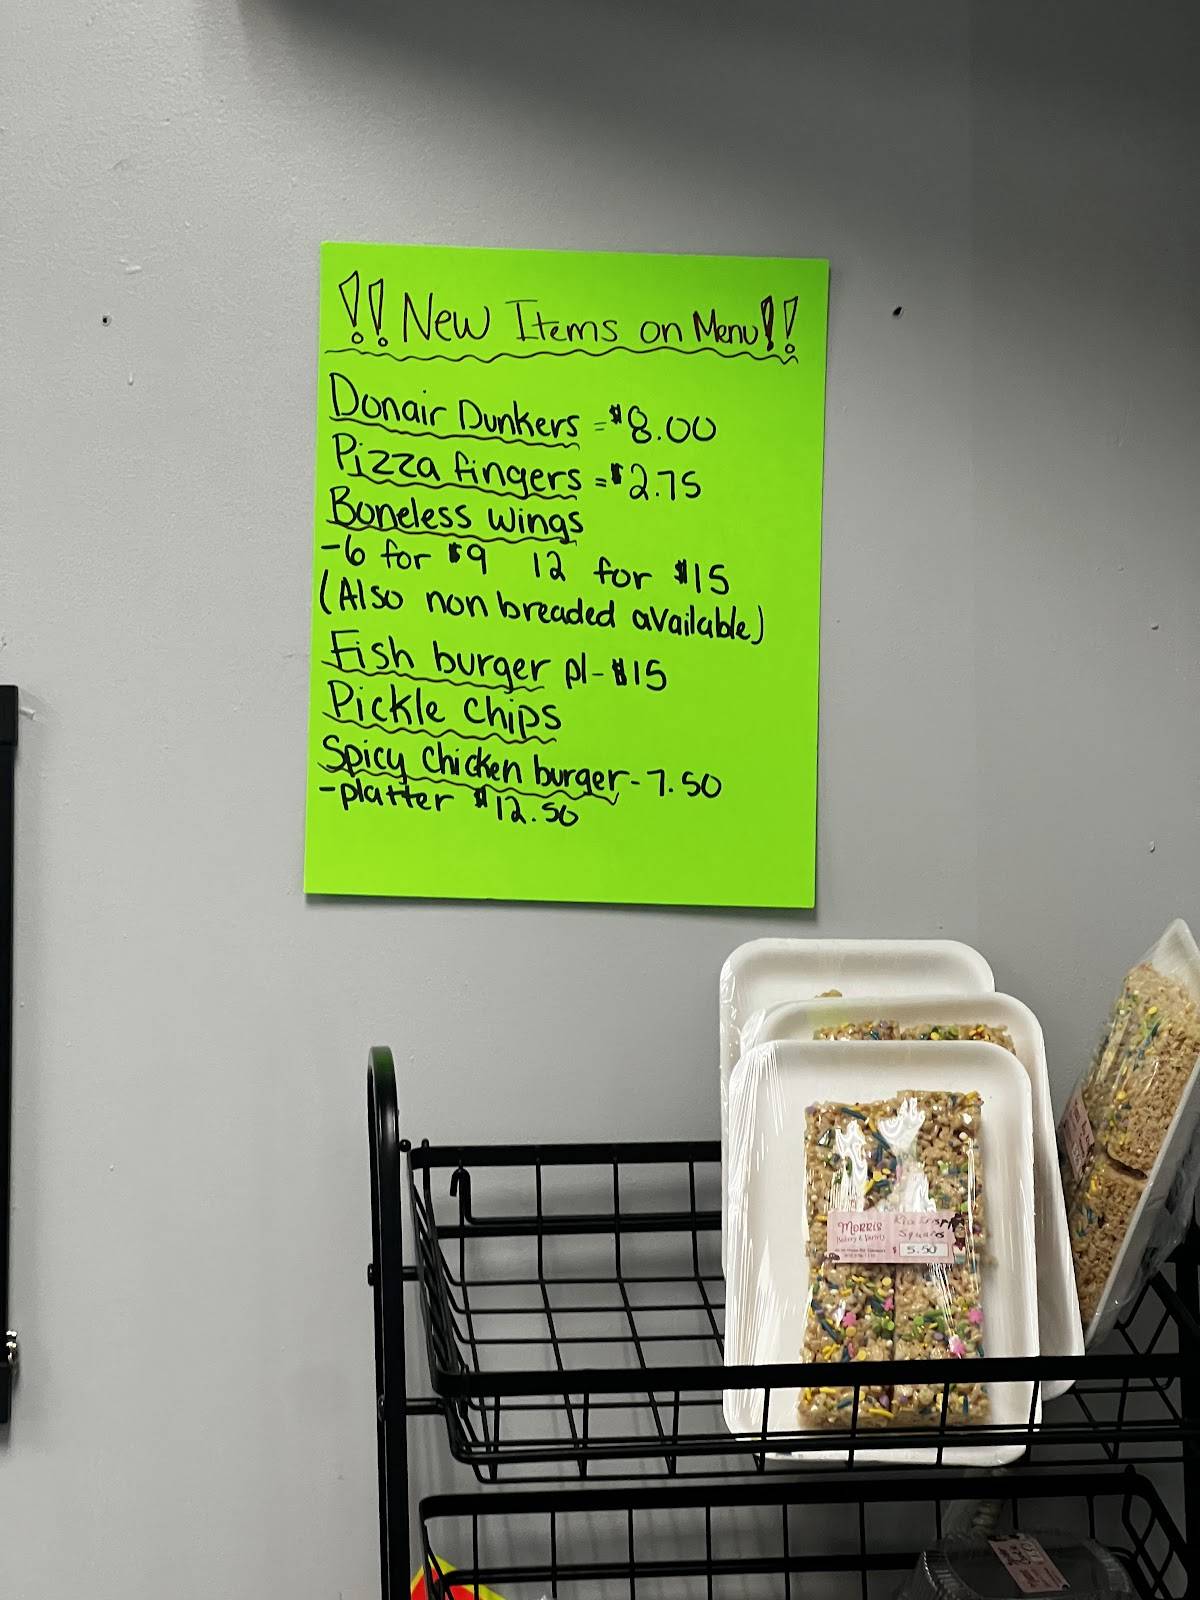 !! New Items on Menu!!
Donair Dunkers =$8.00
Pizza fingers =$2.75
Boneless wings
-6 for $9 12 for $15
(Also non breaded available)
Fish burger pl-$15
Pickle chips
Spicy Chicken burger-7.50
-platter $12.50
Morris
Bakery & Variety
Squares
$ 5.50